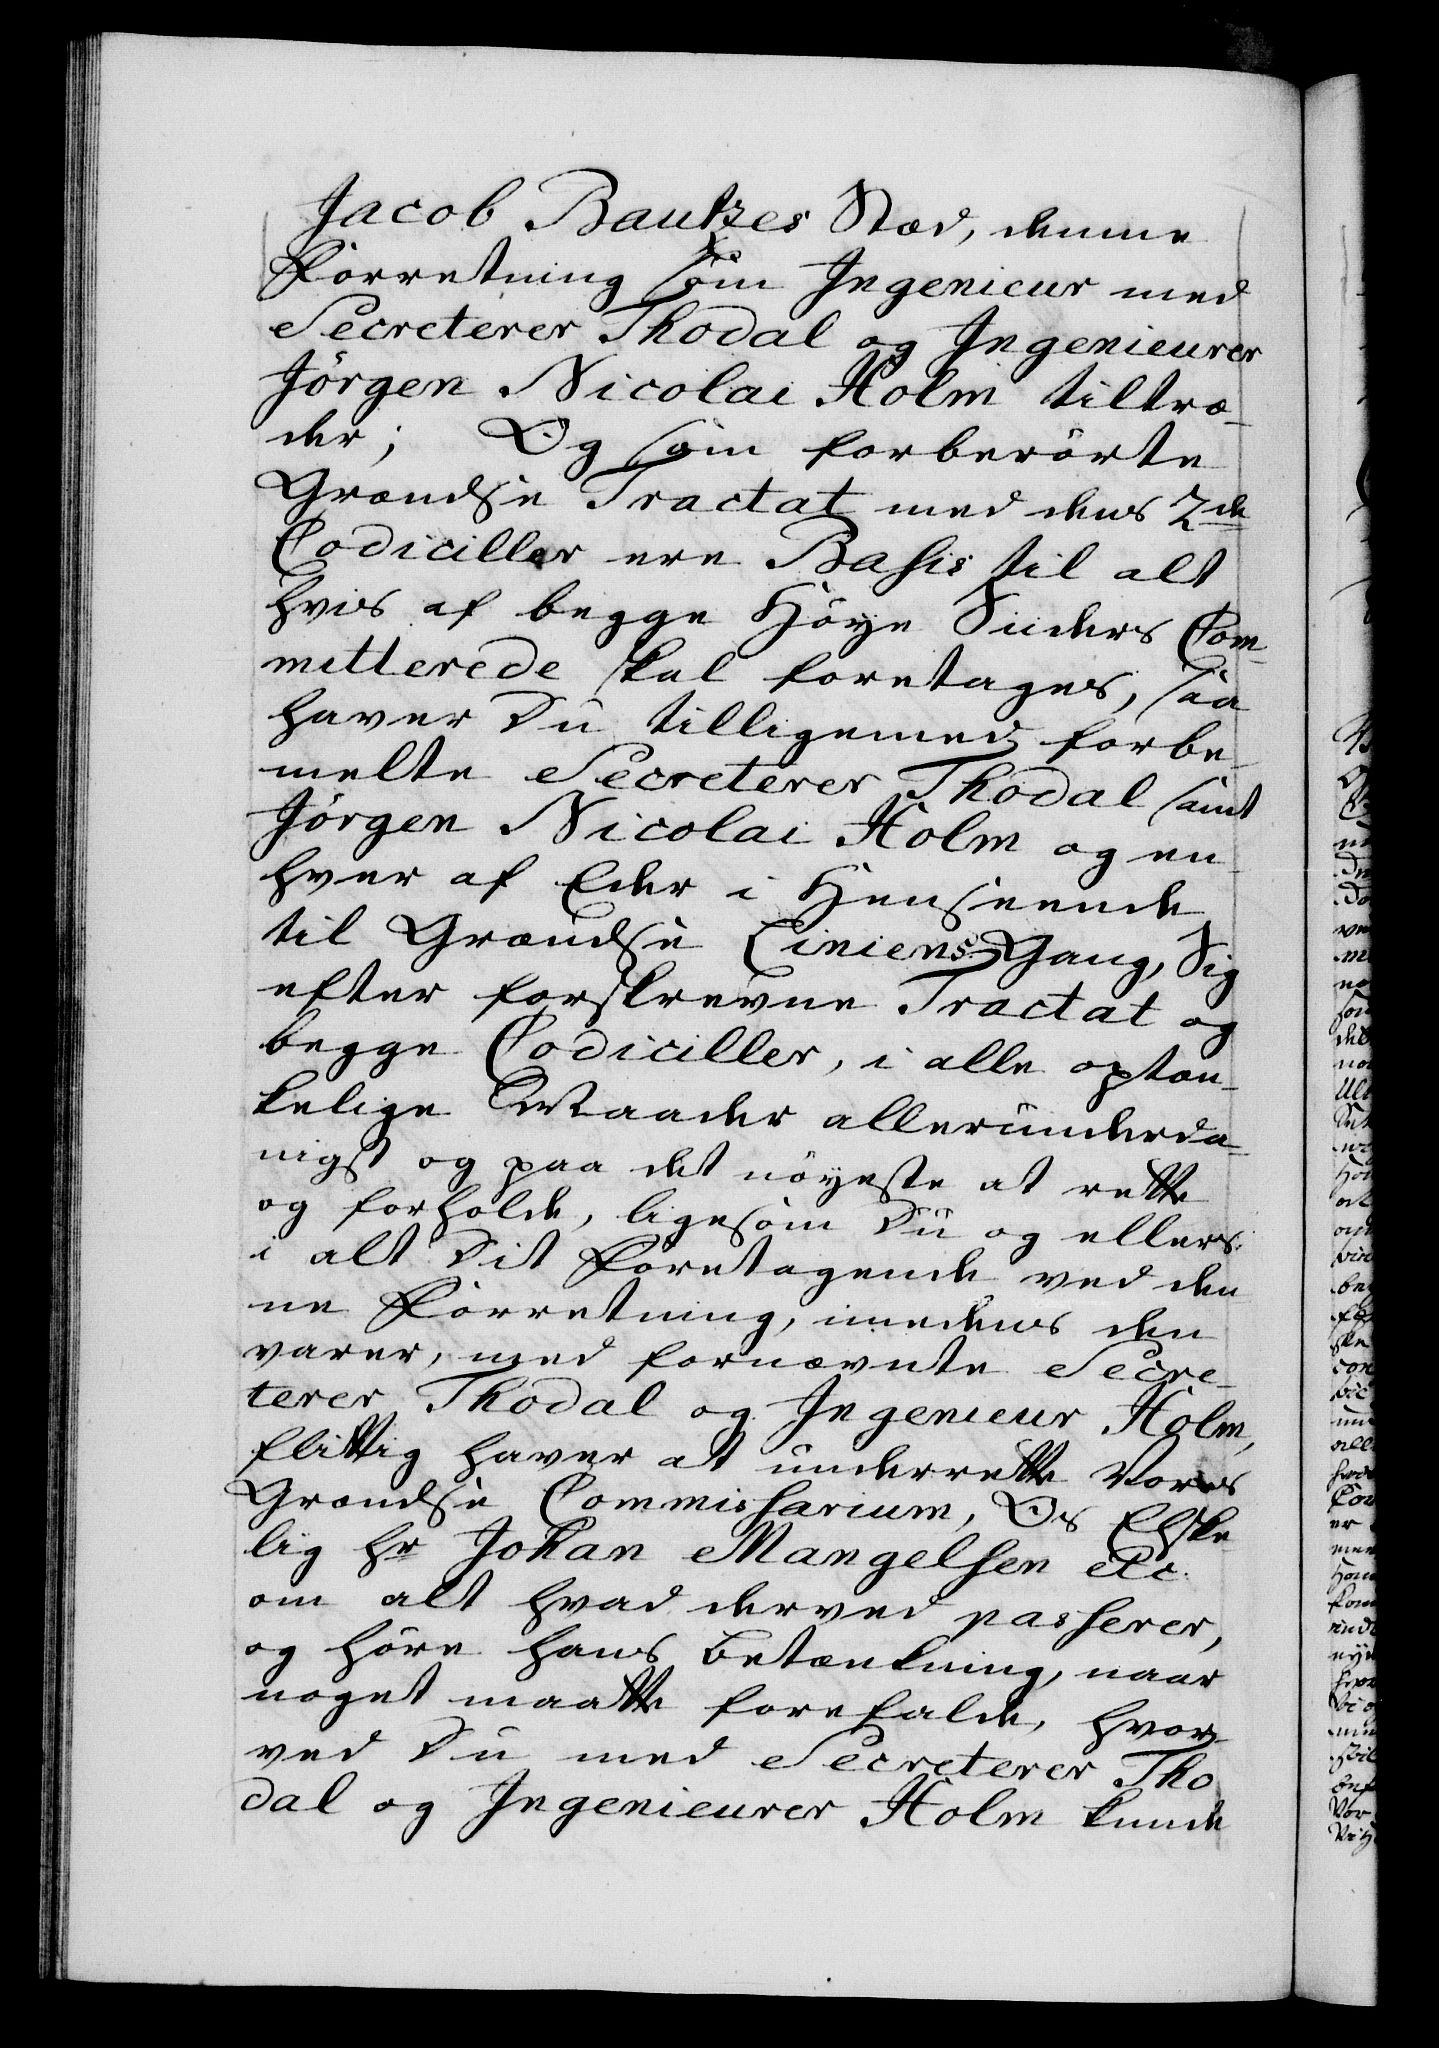 Jacob Bautzes Stæd, denne
Forretning som Ingenieur med
Secreterer Thodal og Ingenieurer
Jörgen Nicolai Holm tiltræ-
der; Og som forberörte
Grændse Tractat med dens 2de
Codiciller ere Basis til alt
hvis af begge Höye Siiders Com-
mitterede skal foretages, saa
haver Du tilligemed forbe-
melte Secreterer Thodal samt
Jörgen Nicolai Holm og en-
hver af Eder i Henseende
til Grændse Liniens Gang, Sig
efter forskrevne Tractat og
begge Codiciller, i alle optæn-
kelige Maader allerunderda-
nigst og paa det nöyeste at rette
og forholde, ligesom Du og ellers
i alt Dit Foretagende ved den-
ne Forretning, imedens den
varer, med fornævnte Secre-
terer Thodal og Ingenieur Holm,
flittig haver at underrette Vores
Grændse Commissarium, Os Elske-
lig Hr Johan Mangelsen etc.
om alt hvad derved passerer,
og höre hans betænkning, naar
noget maatte forefalde, hvor-
ved Du med Secreterer Tho-
dal og Ingenieurer Holm kunde